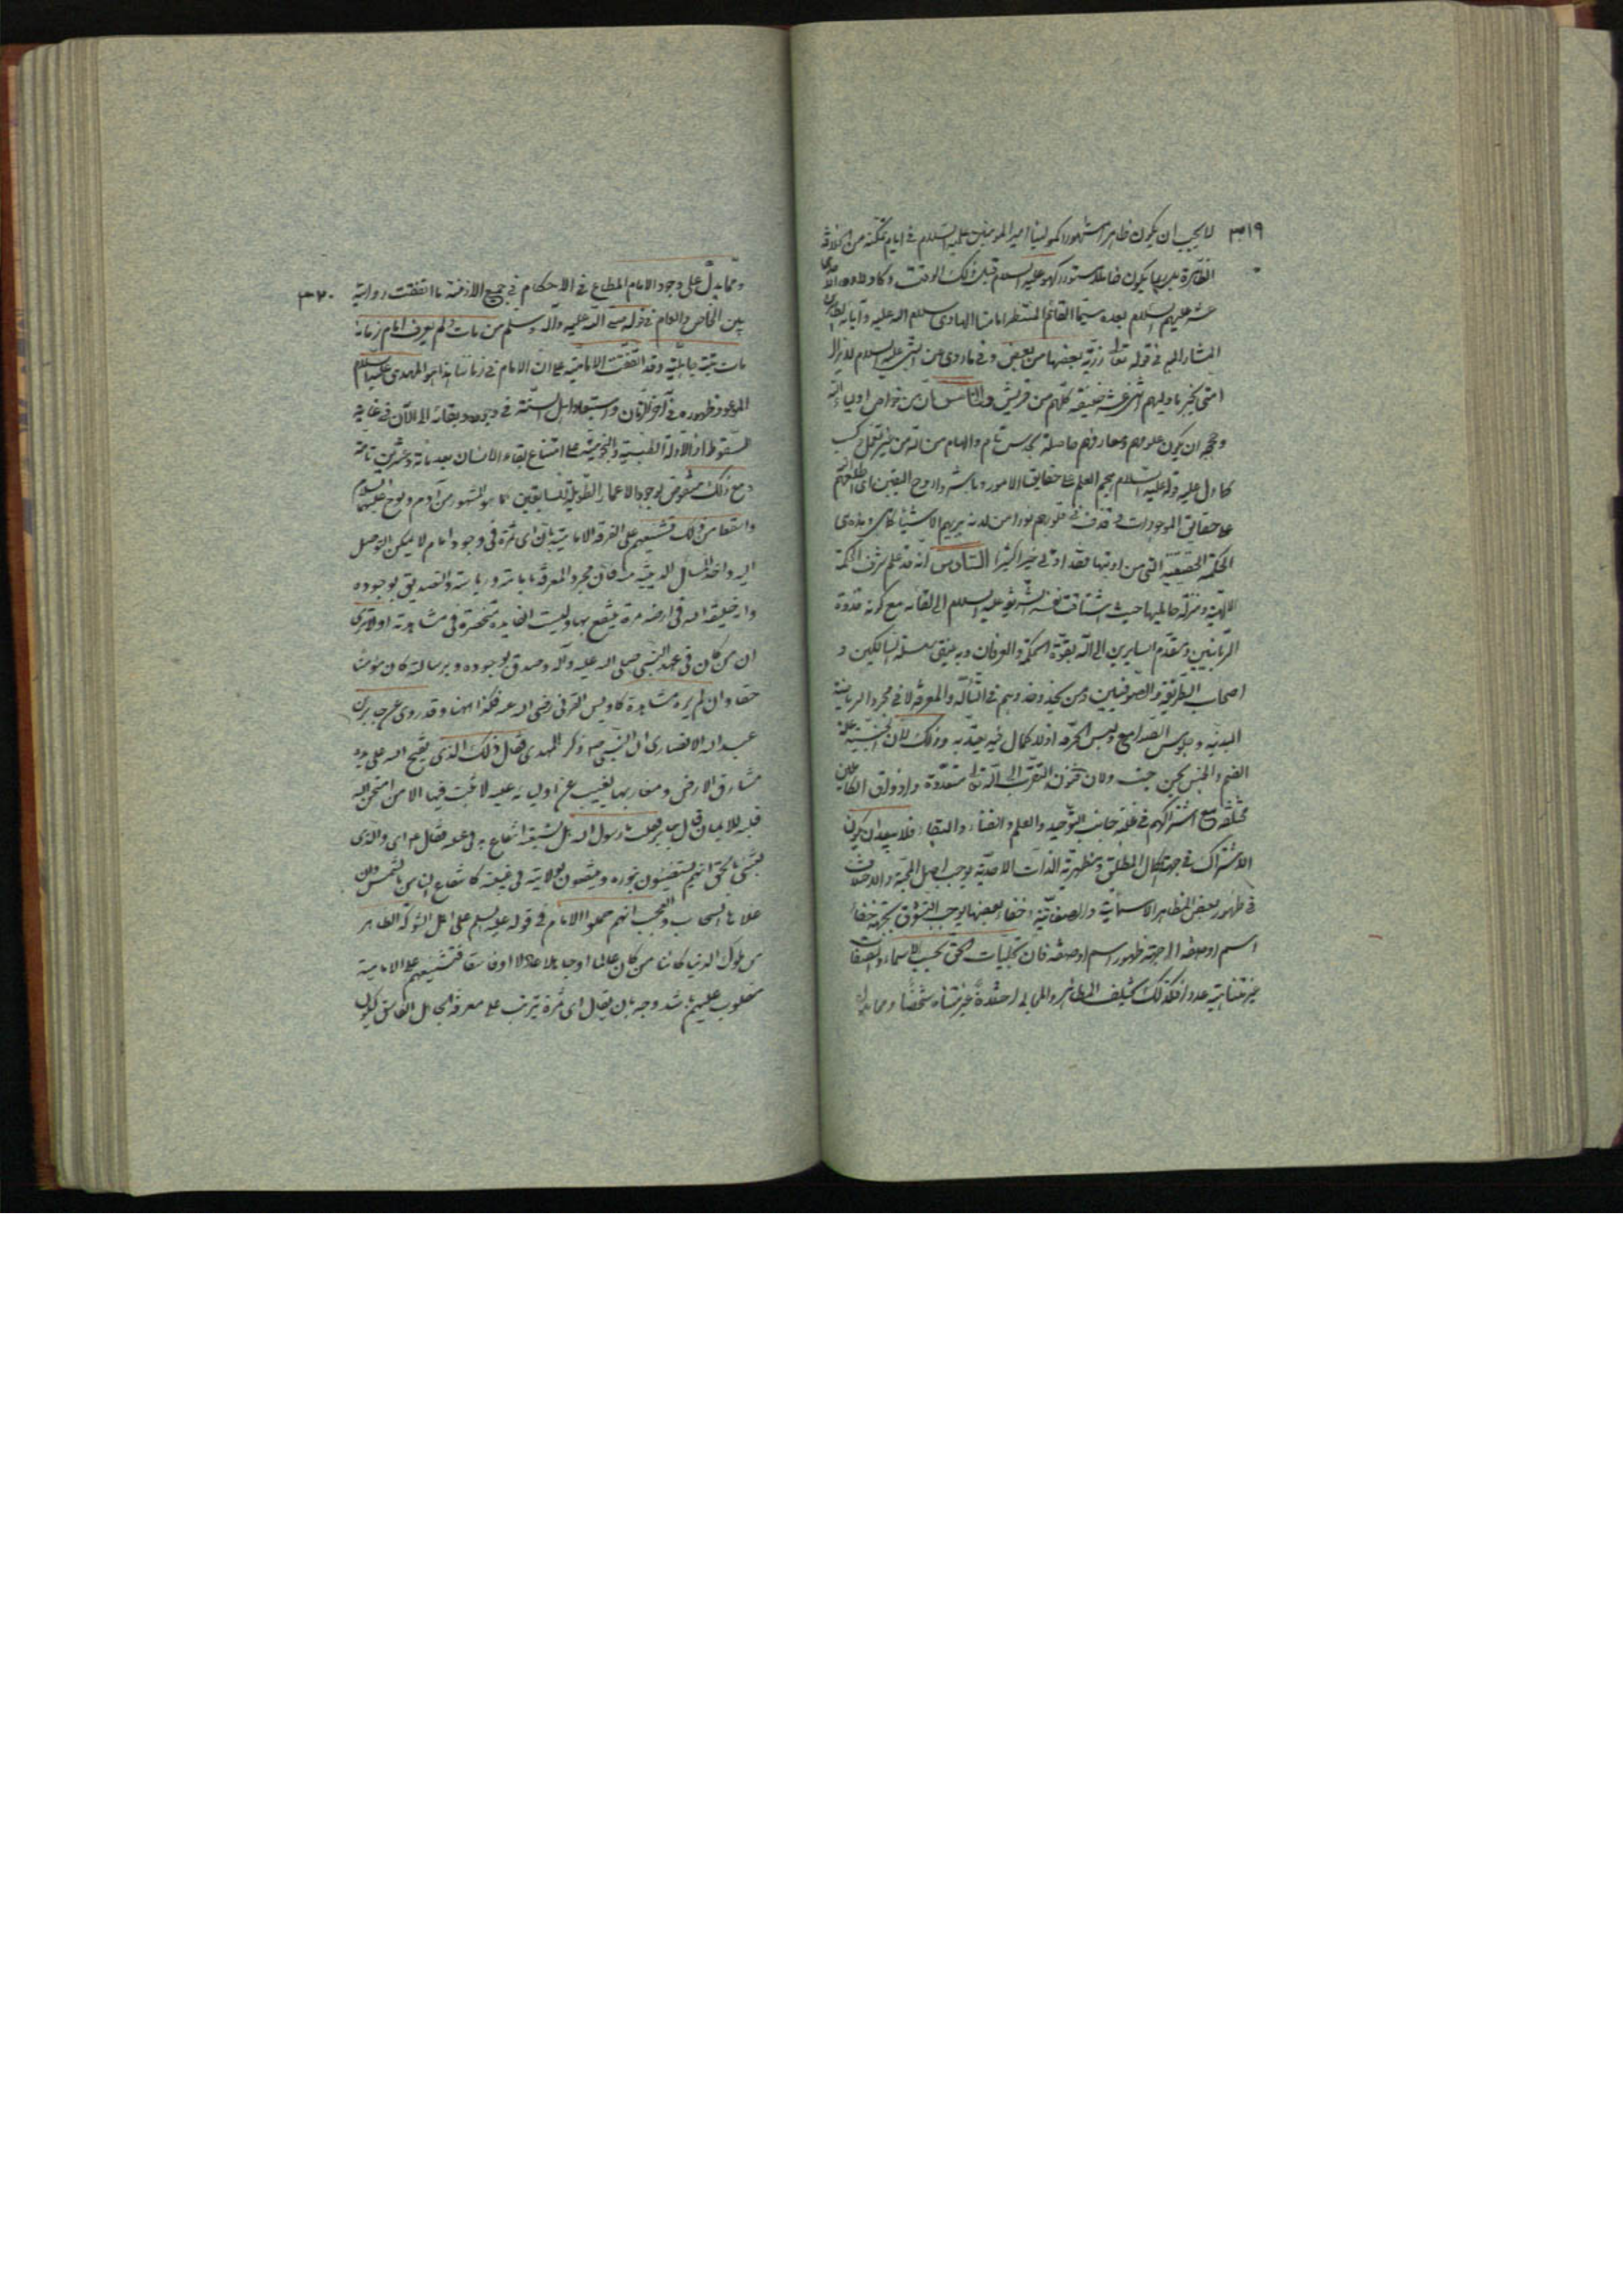 ٣١٩ لا يجب ان يكون ظاهرا مشهورا كمولينا امير المومنين عليه السلام في ايام تمكنه من الخلافة
الظاهرة بل ربما يكون خاملا مستورا كهو عليه السلام قبل ذلك الوقت و كاولاده
عشر عليهم السلام بعده سيما القائم المنتظر امامنا الهادي سلام الله عليه و آبائه
المشار اليهم في قوله تعالى ذرّيّة بعضها من بعض و في ما روى عن النبي عليه السلام لا يزال
امتي بخير ما وليهم اثنى عشر خليفة كلّهم من قريش الخامس ان من خواص اولياء الله
و حججه ان يكون علومهم و معارفهم حاصلة بحدس تام و الهام من الله من غير تعمل و كسب
كما دل عليه قوله عليه السلام هجم العلم على حقايق الامور و باشروا روح اليقين اى اطلعهم الله
على حقايق الموجودات و قذف في قلوبهم نورا من لدنه يريهم الاشياء كما هي و هذه هي
الحكمة الحقيقية التي من اوتيها فقد اوتي خيرا كثيرا السادس انه قد علم شرف الحكمة
الالهية و منزلة حامليها حيث اشتاقت نفسه الشريفة عليه السلام الى لقائه مع كونه قدوة
الربّانيين و مقدّم السايرين الى الله بقوّة الحكمة و العرفان و به ينتهى سلسلة السالكين و
اصحاب الطريقة و الصوفيين و من يحذو حذوهم في التألّه و المعرفة لا في مجرد الرياضة
البدنية و جلوس الصوامع و لبس الخرقة اذ لا كمال فيه يعتدّ به و ذلك لان الجنسية علة
الضم و الجنس يحن الى جنسه و لان فنون التقرّب الى الله تعالى متعدّدة و اذواق الكاملين
مختلفة مع اشتراكهم في غلبة جانب التوحيد و العلم و الفناء و البقاء فلا يبعد ان يكون
الاشتراك في جهة الكمال المطلق و مظهرية الذات الاحدية يوجب اصل المحبة و الاختلاف
في ظهور بعض المظاهر الاسمائية و الصفاتية و خفاء بعضها يوجب التشوق بجهة خفاء
اسم او صفة الى جهة ظهور اسم او صفة فان تجليات الحق بحسب الاسماء و الصفات
غير متناهية عددا فكذلك يختلف المظاهر و المجالى شدة غير متناه شخصا و مما يدل
و ممّا يدلّ على وجود الامام المطاع في الاحكام في جميع الازمنة ما اتفقت رواية ٣٢٠
بين الخاص و العام في قوله صلى الله عليه و آله و سلم من مات و لم يعرف امام زمانه
مات ميتة جاهلية و قد اتفقت الامامية على ان الامام في زماننا هذا هو المهدي عليه السلام
الموعود ظهوره في آخر الزمان و استبعاد اهل السنة في وجوده و بقائه الى الآن في غاية
السقوط اذ الادلة الطبيعية و النجومية على امتناع بقاء الانسان بعد مائة و عشرين تامة
و مع ذلك منقوض بوجود الاعمار الطويلة للسابقين كما هو المشهور من آدم و نوح عليهما السلام
و اسقط من ذلك تشنيعهم على الفرقة الامامية بان اى ثمرة في وجود امام لا يمكن التوصل
اليه و اخذ المسائل الدينية منه فان مجرد المعرفة بامامته و رياسته و التصديق بوجوده
و انه خليفة الله في ارضه ثمرة ينتفع بها و ليست الفايدة منحصرة في مشاهدته او لا ترى
ان من كان في عهد النبي صلى الله عليه و آله و صدق بوجوده و برسالته كان مؤمنا
حقا و ان لم يره مشاهدة كاويس القرني رضى الله عنه فكذا ههنا و قد روى عن جابر بن
عبد الله الانصارى ان النبي ص ذكر المهدى فقال ذلك الذى يفتح الله على يديه
مشارق الارض و مغاربها يغيب عن اوليائه غيبة لا يثبت فيها الا من امتحن الله
قلبه للايمان قال جابر فقلت يا رسول الله هل لشيعته انتفاع به في غيبته فقال ع اى و الذى
بعثنى بالحق انهم يستضيئون بنوره و ينتفعون بولايته في غيبته كانتفاع الناس بالشمس و ان
علاها السحاب و العجب انهم حملوا الامام في قوله عليه السلم على اهل الشوكة الظاهر
من ملوك الدنيا كائنا من كان عالما او جاهلا عادلا او فاسقا فتشنيعهم على الامامية
مقلوب عليهم باشد وجه بان يقال اى ثمرة يترتب على معرفة الجاهل الفاسق ليكون